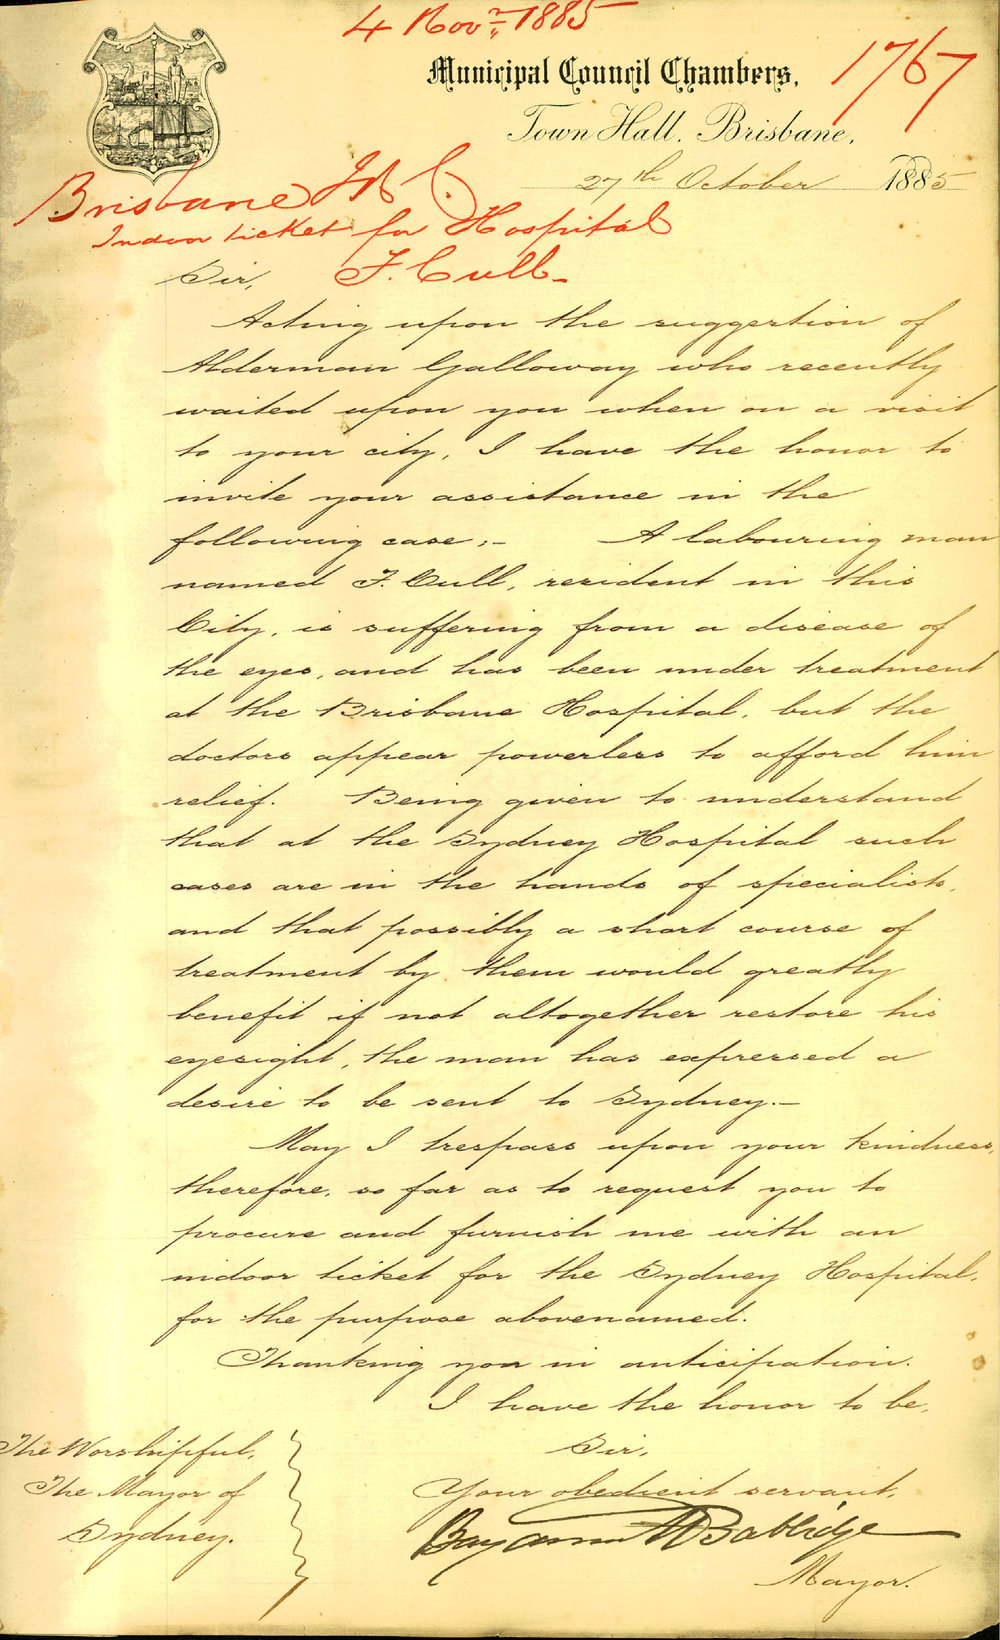 4 Novr 1885
Municipal Council Chambers,
1767
Town Hall, Brisbane,
27th October 1885
Brisbane
Indoor ticket for Hospital
F. Cull -
Sir,
Acting upon the suggestion of
Alderman Galloway who recently
waited upon you when on a visit
to your city, I have the honor to
invite your assistance in the
following case:- A labouring man
named F. Cull, resident in this
City, is suffering from a disease of
the eyes, and has been under treatment
at the Brisbane Hospital, but the
doctors appear powerless to afford him
relief. Being given to understand
that at the Sydney Hospital such
cases are in the hands of specialists,
and that possibly a short course of
treatment by them would greatly
benefit if not altogether restore his
eyesight, the man has expressed a
desire to be sent to Sydney.-
May I trespass upon your kindness,
therefore, so far as to request you to
procure and furnish me with an
indoor ticket for the Sydney Hospital,
for the purpose abovenamed.
Thanking you in anticipation.
I have the honor to be,
Sir,
Your obedient servant,
Babbidge
Mayor.
The Worshipful,
The Mayor of
Sydney.